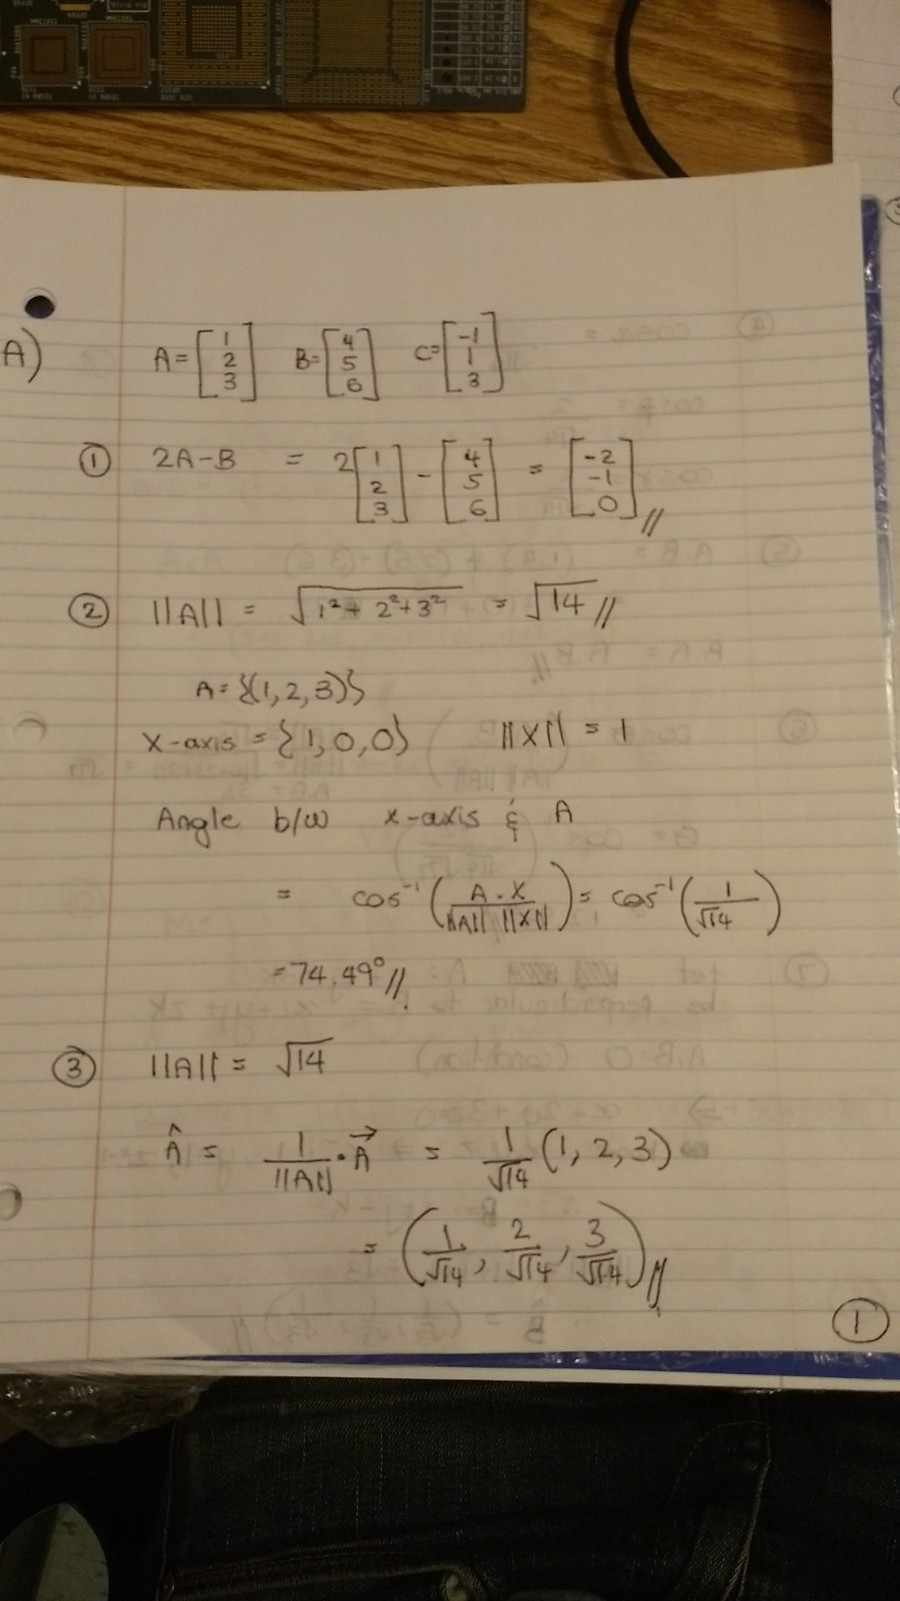 A) A = [1 2 3] B = [4 5 6] C = [-1 1 3]
① 2A-B = 2[1 2 3] - [4 5 6] = [-2 -1 0] //
② ||A|| = √(1² + 2² + 3²) = √14 //
A = {(1, 2, 3)}
x-axis = {1, 0, 0} ||X|| = 1
Angle b/w x-axis & A
= cos⁻¹(A · X / ||A|| ||X||) = cos⁻¹(1 / √14)
= 74.49° //
③ ||A|| = √14
Â = 1/||A|| · A⃗ = 1/√14 (1, 2, 3)
= (1/√14, 2/√14, 3/√14) //
①